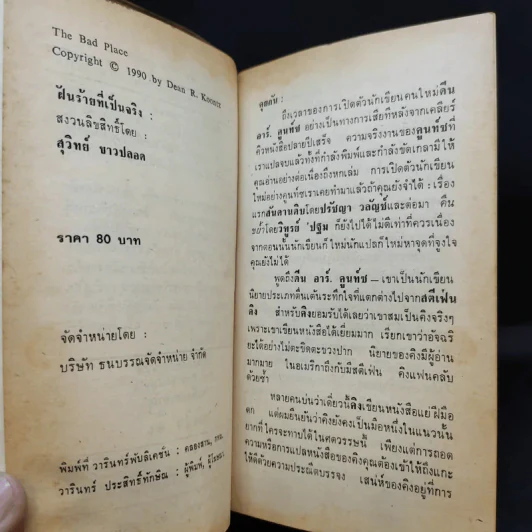 The Bad Place
Copyright © 1990 by Dean R. Koontz
ฝันร้ายที่เป็นจริง :
สงวนลิขสิทธิ์โดย :
สุวิทย์ ขาวปลอด
ราคา 80 บาท
จัดจำหน่ายโดย :
บริษัท ธนบรรณจัดจำหน่าย จำกัด
พิมพ์ที่ วารินทร์พับลิเคชั่น : คลองสาน, กทม.
วารินทร์ ประสิทธิ์ทักษิณ : ผู้พิมพ์, ผู้โฆษณา
คุยกัน :
ถึงเวลาของการเปิดตัวนักเขียนคนใหม่ดีน
อาร์. คูนท์ซ อย่างเป็นทางการเสียทีหลังจากเคลียร์
คิวหนังสือปลายปีเสร็จ ความจริงงานของคูนท์ซที่
เราแปลจบแล้วทั้งที่กำลังพิมพ์และกำลังขัดเกลามีให้
คุณอ่านอย่างต่อเนื่องถึงหกเล่ม การเปิดตัวนักเขียน
ใหม่อย่างคูนท์ซเราเคยทำมาแล้วถ้าคุณยังจำได้ : เรื่อง
แรกสันดานดิบโดยปรัชญา วลัญช์และต่อมา คืน
โดยวิฑูรย์ 'ปฐม ก็ยังไปได้ไม่ดีเท่าที่ควรเนื่อง
จากตอนนั้นนักเขียนก็ใหม่นักแปลก็ใหม่หาจุดที่จูงใจ
คุณยังไม่ได้
พูดถึงดีน อาร์. คูนท์ซ — เขาเป็นนักเขียน
นิยายประเภทตื่นเต้นระทึกใจที่แตกต่างไปจากสตีเฟ่น
คิง สำหรับคิงยอมรับได้เลยว่าเขาสมเป็นคิงจริงๆ
เพราะเขาเขียนหนังสือได้เยี่ยมมาก เรียกเขาว่าอัจฉริ
ยะได้อย่างไม่ตะขิดตะขวงปาก นิยายของคิงมีผู้อ่าน
มากมาย ในอเมริกาถึงกับมีสตีเฟ่น คิงแฟนคลับ
ด้วยซ้ำ
หลายคนบ่นว่าเดี๋ยวนี้คิงเขียนหนังสือแย่ ฝีมือ
ตก แต่ผมยืนยันว่าคิงยังคงเป็นมือหนึ่งในแนวนั้น
ยากที่ใครจะทาบได้ในศตวรรษนี้ เพียงแต่การถอด
ความหรือการแปลหนังสือของคิงคุณต้องเข้าให้ถึงแกะ
ให้ดีด้วยความประณีตบรรจง เสน่ห์ของคิงอยู่ที่การ